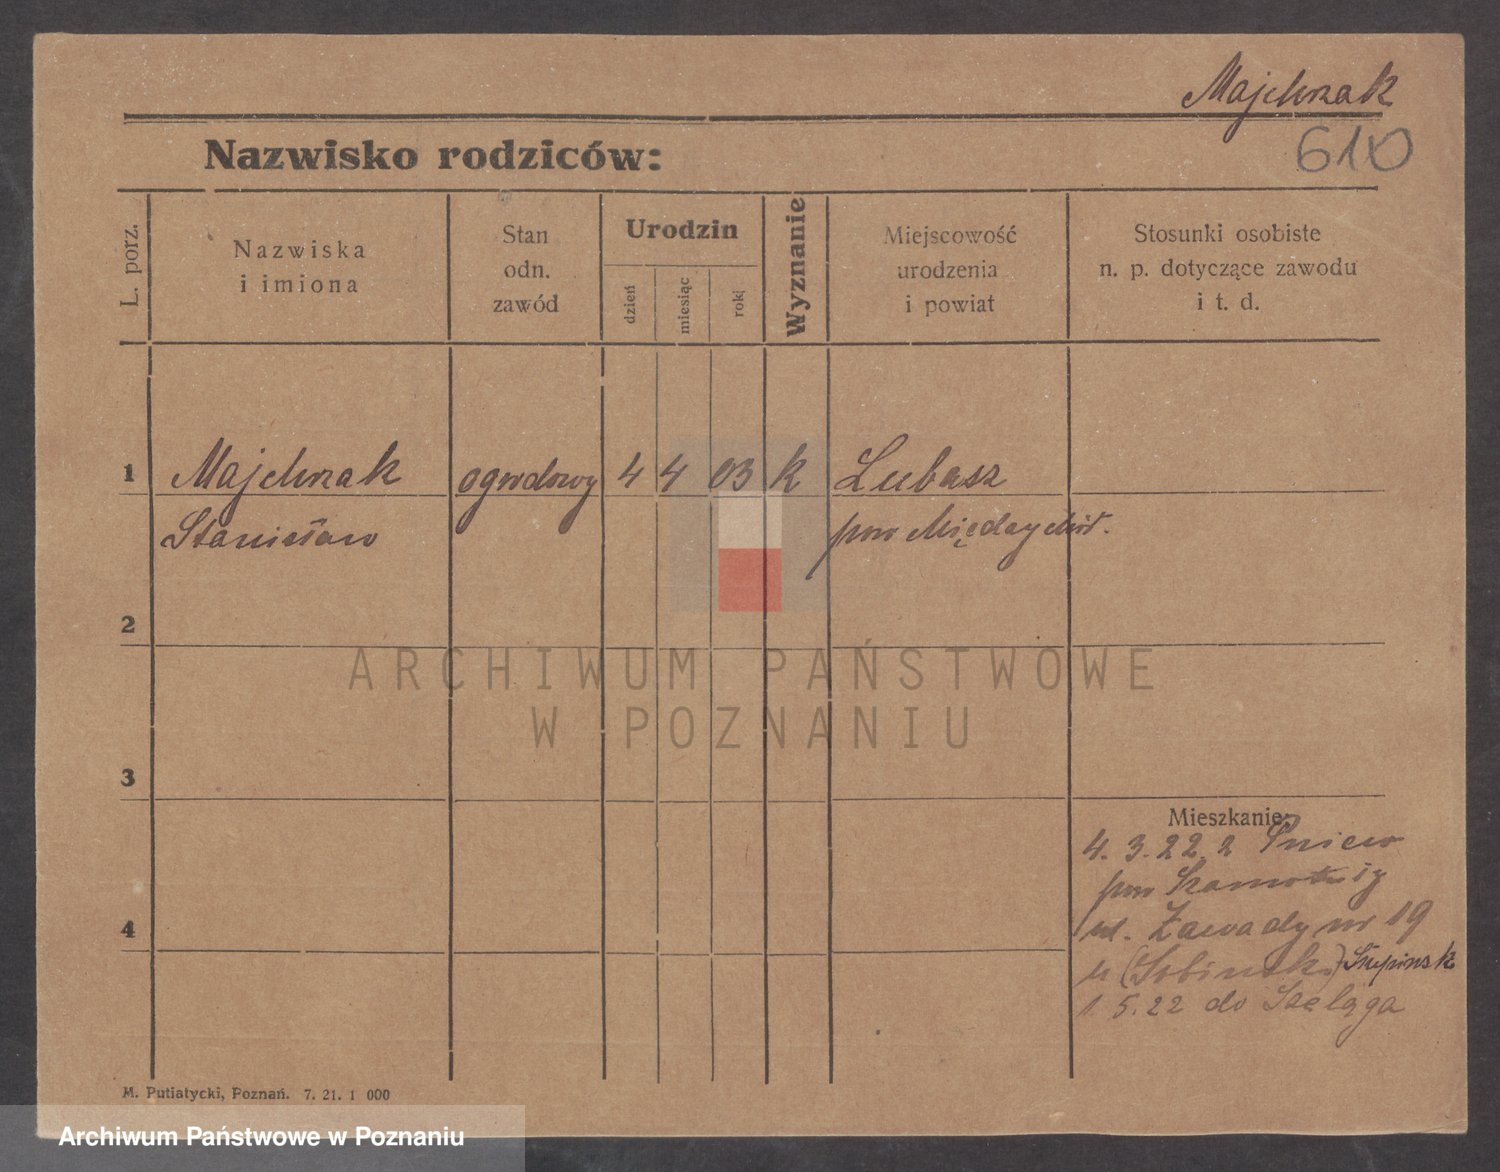 Majchrzak
610
Nazwisko rodziców:
L. porz.
Nazwiska
i imiona
Stan
odn.
zawód
Urodzin
dzień
miesiąc
rok
Wyznanie
Miejscowość
urodzenia
i powiat
Stosunki osobiste
n. p. dotyczące zawodu
i t. d.
1
Majchrzak
Stanisław
ogrodowy
4
4
03
k
Lubasz
pow Międzychód.
2
ARCHIWUM PAŃSTWOWE
W POZNANIU
3
Mieszkanie:
4. 3. 22 z Pniew
pow Szamotuły
ul. Zawady nr 19
4
u (Sobinski)
1. 5. 22 do Szeląga
M. Putiatycki, Poznań. 7. 21. 1 000
Archiwum Państwowe w Poznaniu